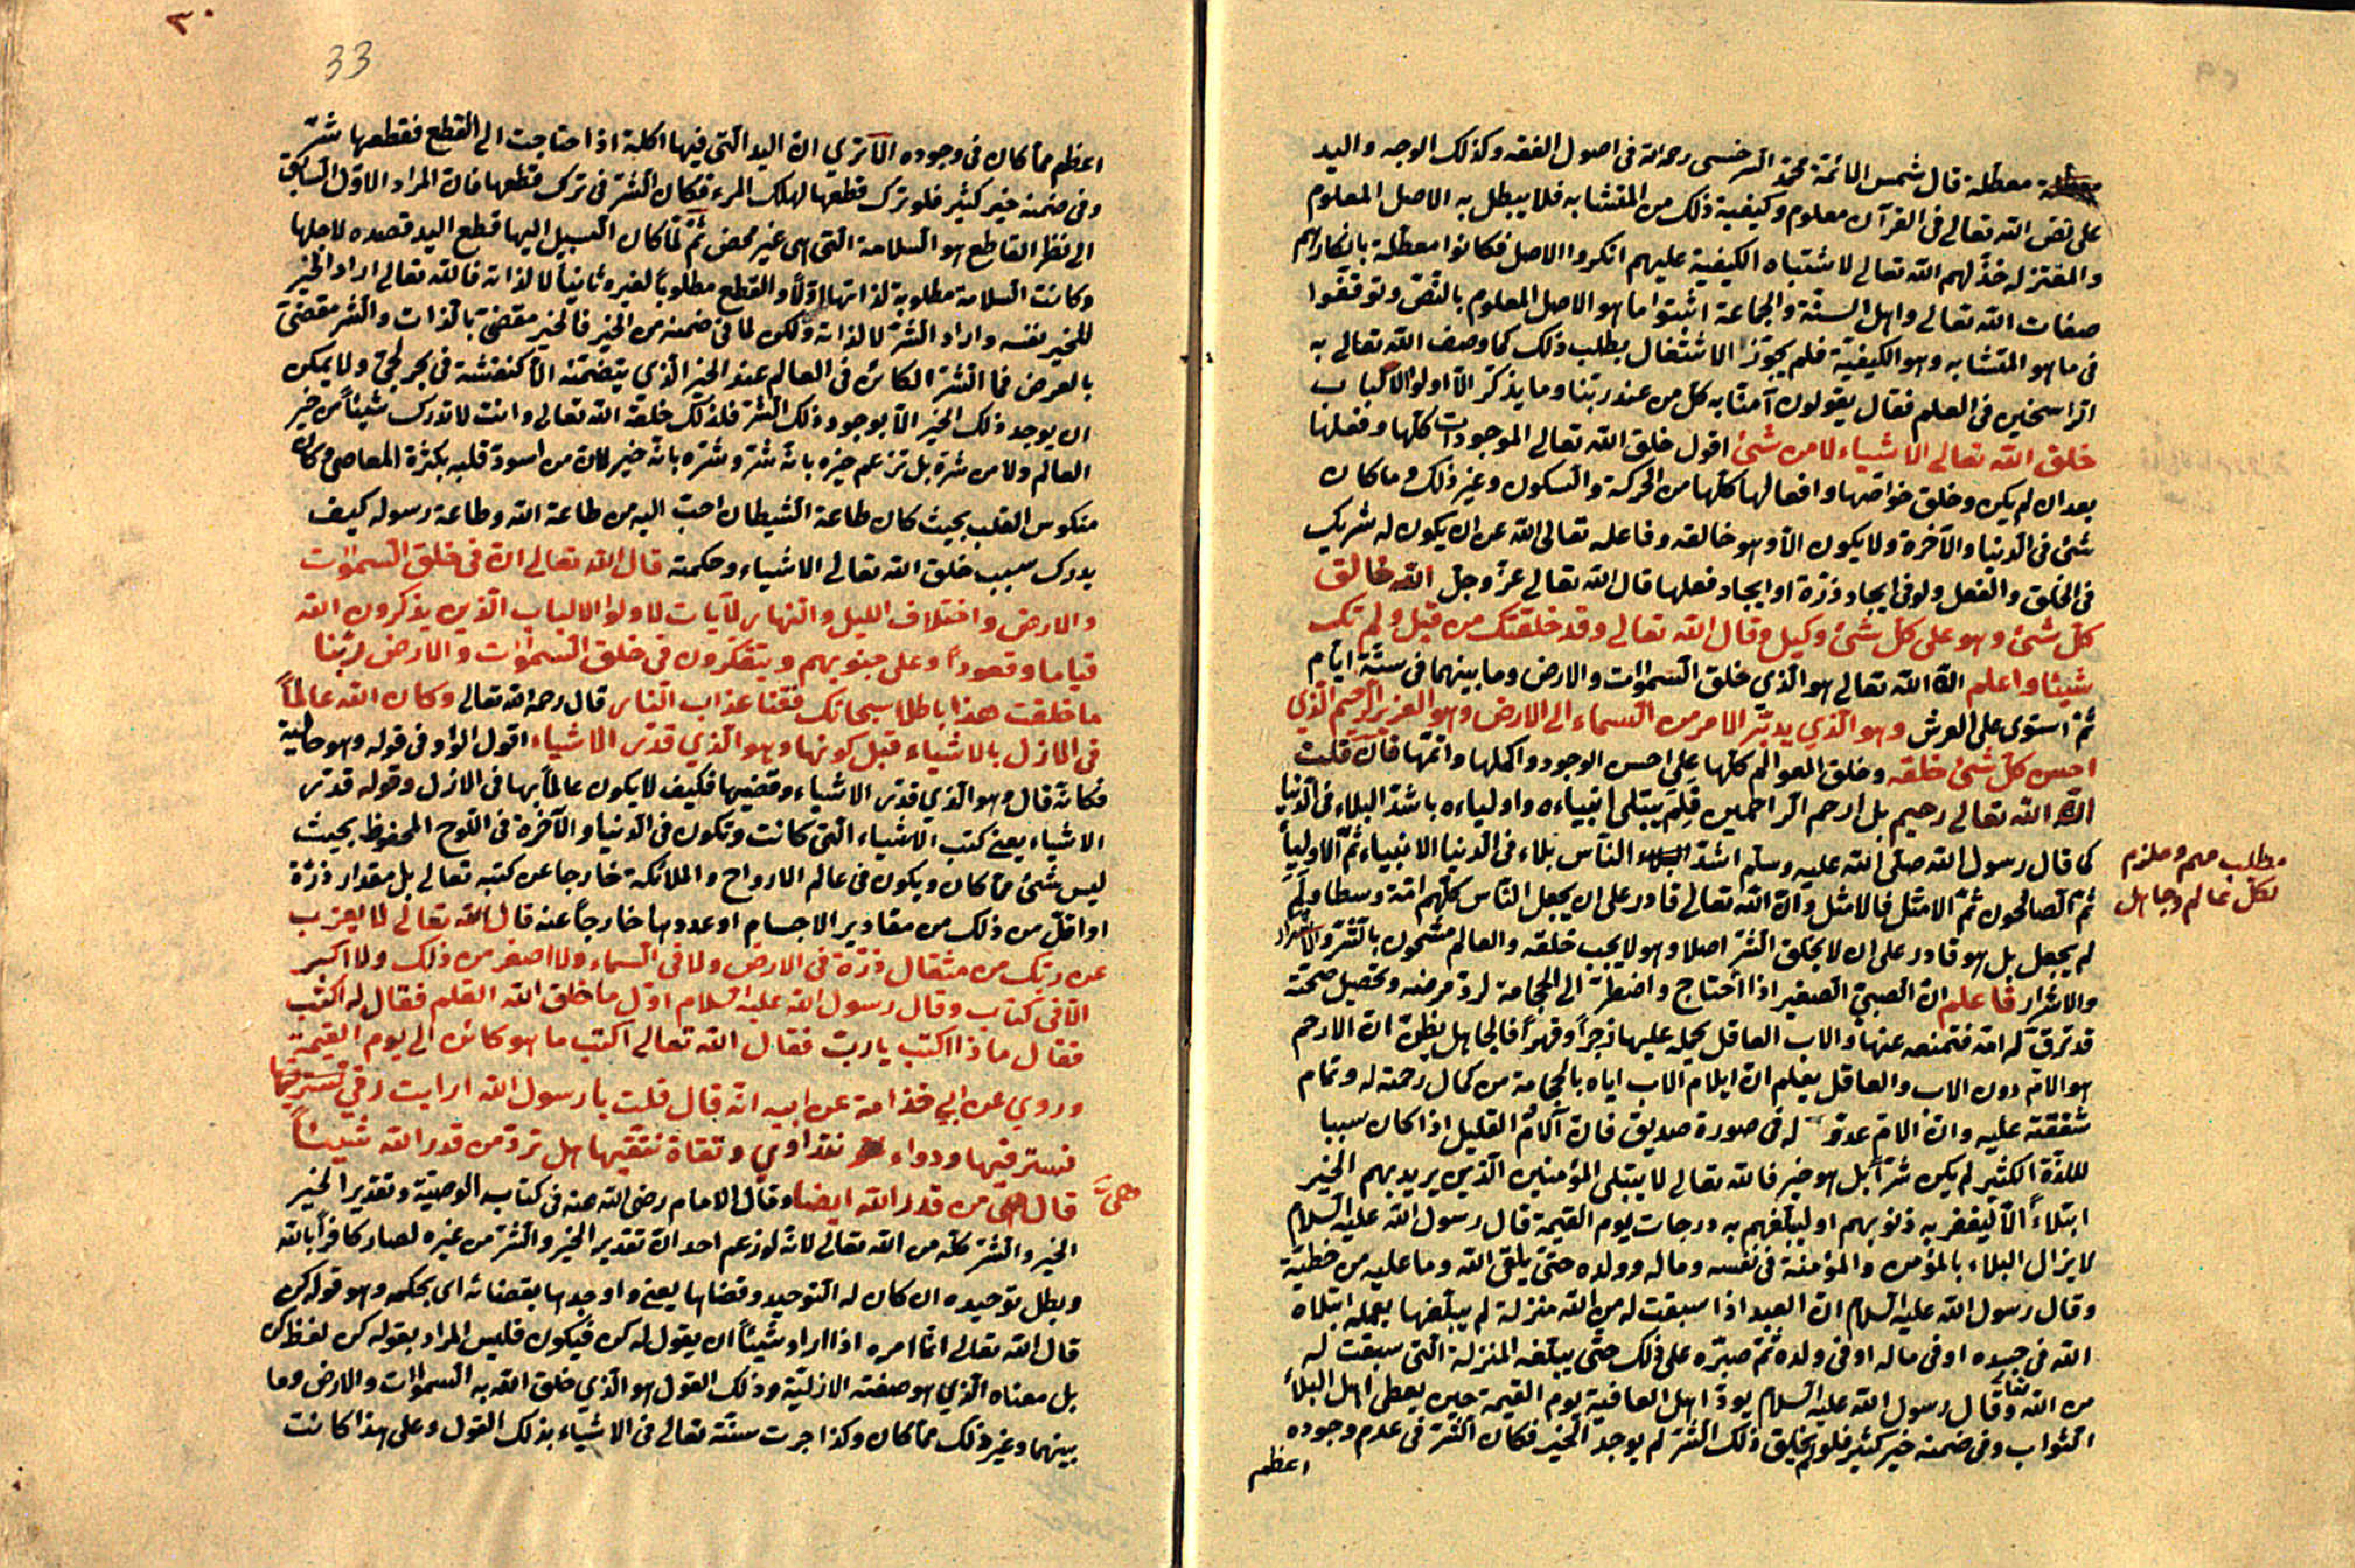 معطلة قال شمس الائمة محمد السرخسى رحمه الله فى اصول الفقه وكذلك الوجه واليد
على نص الله تعالى فى القرآن معلوم وكيفية ذلك من المتشابه فلا يبطل به الاصل المعلوم
والمعتزله خذلهم الله تعالى لاشتباه الكيفية عليهم انكروا الاصل فكانوا معطلة بانكارهم
صفات الله تعالى واهل السنة والجماعة اثبتوا ما هو الاصل المعلوم بالنص وتوقفوا
فى ما هو المتشابه وهو الكيفية فلم يجوز الاشتغال بطلب ذلك كما وصف الله تعالى به
الراسخين فى العلم فقال يقولون آمنا به كل من عند ربنا وما يذكر الا اولوا الالباب
خلق الله تعالى الاشياء لا من شئ اقول خلق الله تعالى الموجودات كلها وفعلها
بعد ان لم يكن وخلق خواصها وافعالها كلها من الحركة والسكون وغير ذلك وما كان
شئ فى الدنيا والآخرة ولا يكون الا وهو خالقه وفاعله تعالى الله عن ان يكون له شريك
فى الخلق والفعل ولو فى ايجاد ذرة او ايجاد فعلها قال الله تعالى عز وجل الله خالق
كل شئ وهو على كل شئ وكيل وقال الله تعالى وقد خلقتك من قبل ولم تك
شيئا واعلم ان الله تعالى هو الذي خلق السموات والارض وما بينهما فى ستة ايام
ثم استوى على العرش وهو الذي يدبر الامر من السماء الى الارض وهو العزيز الرحيم الذي
احسن كل شئ خلقه وخلق العوالم كلها على احسن الوجود واكملها واتمها فان قلت
ان الله تعالى رحيم بل ارحم الراحمين فلم يبتلى انبياءه واولياءه باشد البلاء فى الدنيا
كما قال رسول الله صلى الله عليه وسلم اشد الناس بلاء فى الدنيا الانبياء ثم الاوليا
ثم الصالحون ثم الامثل فالامثل وان الله تعالى قادر على ان يجعل الناس كلهم امة وسطا ولم
لم يجعل بل هو قادر على ان لا يخلق الشر اصلا وهو لا يجب خلقه والعالم مشحون بالشر والاضرار
والاشرار فاعلم ان الصبي الصغير اذا احتاج واضطر الى الحجامة لرد مرضه وتحصيل صحته
قد ترق له امه فتمنعه عنها والاب العاقل يحمله عليها زجرا وقهرا فالجاهل يظن ان الارحم
هو الام دون الاب والعاقل يعلم ان ايلام الاب اياه بالحجامة من كمال رحمته له وتمام
شفقته عليه وان الام عدو له فى صورة صديق فان آلام القليل اذا كان سببا
لللذة الكثير لم يكن شرا بل هو خير فالله تعالى لا يبتلى المؤمنين الذين يريد بهم الخير
ابتلاءً الا ليغفر به ذنوبهم او ليبلغهم به درجات يوم القيمة قال رسول الله عليه السلام
لا يزال البلاء بالمؤمن والمؤمنة فى نفسه وماله وولده حتى يلقى الله وما عليه من خطيئة
وقال رسول الله عليه السلام ان العبد اذا سبقت له من الله منزلة لم يبلغها بعمله ابتلاه
الله فى جسده او فى ماله او فى ولده ثم صبره على ذلك حتى يبلغه المنزلة التى سبقت له
من الله تعالى وقال رسول الله عليه السلام يود اهل العافية يوم القيمة حين يعطى اهل البلاء
الثواب وفى ضمنه خير كثير فلو لم يخلق ذلك الشر لم يوجد الخير فكان الشر فى عدم وجوده
اعظم
مطلب مهم وملزم
لكل عالم وجاهل
33
٣٠
اعظم مما كان فى وجوده الا ترى ان اليد التى فيها اكلة اذا احتاجت الى القطع فقطعها شر
وفى ضمنه خير كثير فلو ترك قطعها لهلك المرء فكان الشر فى ترك قطعها فان المراد الاول السابق
الى نظر القاطع هو السلامة التى هى غير محض ثم لما كان السبيل اليها قطع اليد قصده لاجلها
وكانت السلامة مطلوبة لذاتها اولا والقطع مطلوباً لغيره ثانيا لا لذاته فالله تعالى اراد الخير
للخير نفسه واراد الشر لا لذاته ولكن لما فى ضمنه من الخير فالخير مقضى بالذات والشر مقضى
بالعرض فما الشر الكائن فى العالم عند الخير الذي يتضمنه الا كنفثة فى بحر لجي ولا يمكن
ان يوجد ذلك الخير الا بوجود ذلك الشر فلذلك خلقه الله تعالى وانت لا تدرك شيئاً من خير
العالم ولا من شره بل تزعم خيره بانه شر وشره بانه خير لان من اسود قلبه بكثرة المعاصى وكان
منكوس القلب بحيث كان طاعة الشيطان احب اليه من طاعة الله وطاعة رسوله كيف
يدرك سبب خلق الله تعالى الاشياء وحكمته قال الله تعالى ان فى خلق السموات
والارض واختلاف الليل والنهار لآيات لاولوا الالباب الذين يذكرون الله
قياما وقعوداً وعلى جنوبهم ويتفكرون فى خلق السموات والارض ربنا
ما خلقت هذا باطلا سبحانك فقنا عذاب النار قال رحمه الله تعالى وكان الله عالماً
فى الازل بالاشياء قبل كونها وهو الذي قدر الاشياء اقول الواو فى قوله وهو حالية
فكانه قال وهو الذي قدر الاشياء وقضيها فكيف لا يكون عالماً بها فى الازل وقوله قدر
الاشياء يعنى كتب الاشياء التى كانت وتكون فى الدنيا والآخرة فى اللوح المحفوظ بحيث
ليس شئ مما كان ويكون فى عالم الارواح والملائكة خارجا عن كتبه تعالى بل مقدار ذرة
او اقل من ذلك من مقادير الاجسام او عددها خارجاً عنه قال الله تعالى لا يعزب
عن ربك من مثقال ذرة فى الارض ولا فى السماء ولا اصغر من ذلك ولا اكبر
الا فى كتاب وقال رسول الله عليه السلام اول ما خلق الله القلم فقال له اكتب
فقال ماذا اكتب يا رب فقال الله تعالى اكتب ما هو كائن الى يوم القيمة
وروي عن ابي خذامة عن ابيه انه قال قلت يا رسول الله ارايت رقي
نسترقيها ودواء نتداوي وتقاة نتقيها هل ترد من قدر الله شيئاً
قال هى من قدر الله ايضا وقال الامام رضى الله عنه فى كتاب الوصية وتقدير الخير
هى
الخير والشر كله من الله تعالى لانه لو زعم احد ان تقدير الخير والشر من غيره لصار كافراً بالله
وبطل توحيده ان كان له التوحيد وقضاها يعنى واوجدها بقضائه اى بحكمه وهو قوله كن
قال الله تعالى انما امره اذا اراد شيئاً ان يقول له كن فيكون فليس المراد بقوله كن لفظ كن
بل معناه الذي هو صفته الازلية وذلك القول هو الذي خلق الله به السموات والارض وما
بينهما وغير ذلك مما كان وكذا جرت سنة تعالى فى الاشياء بذلك القول وعلى هذا كانت